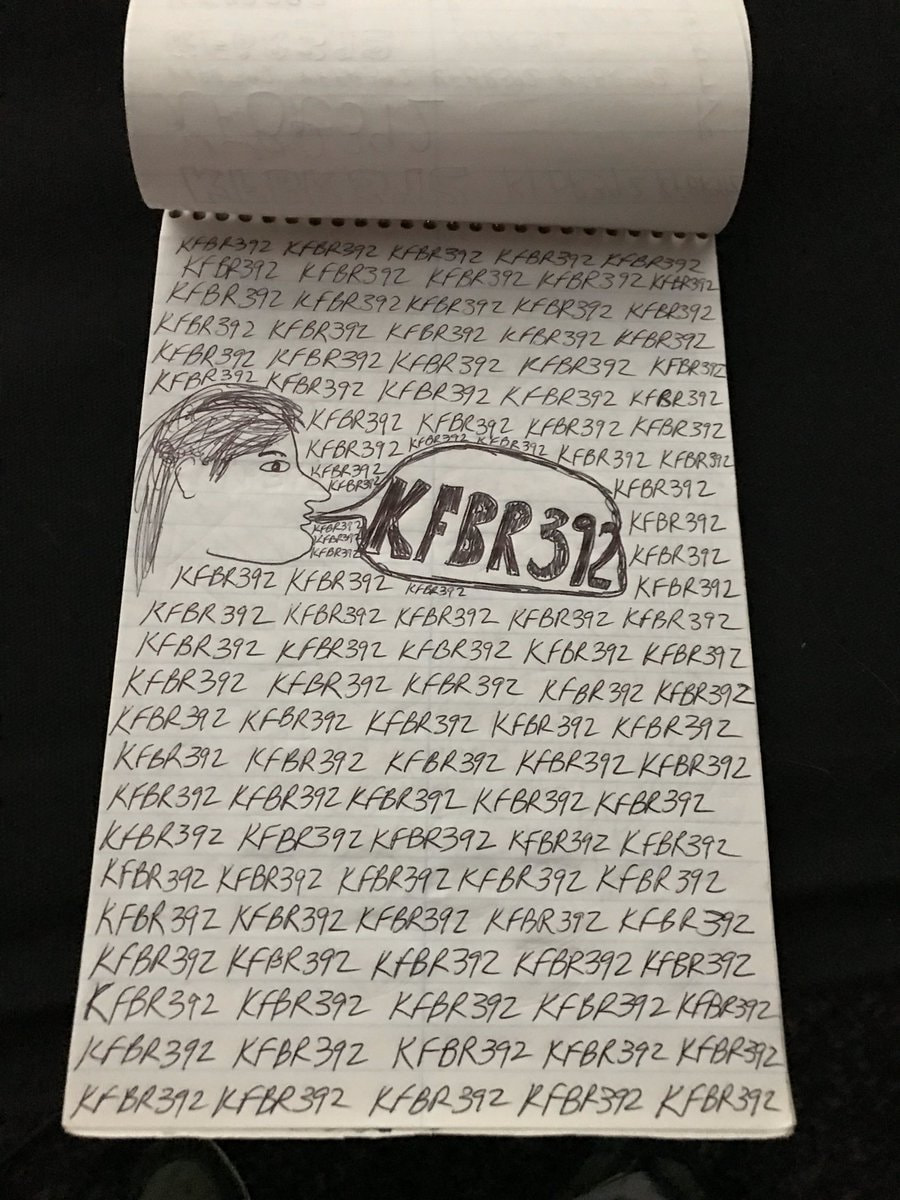 KFBR392 KFBR392 KFBR392 KFBR392 KFBR392
KFBR392 KFBR392 KFBR392 KFBR392 KFBR392
KFBR392 KFBR392 KFBR392 KFBR392 KFBR392
KFBR392 KFBR392 KFBR392 KFBR392 KFBR392
KFBR392 KFBR392 KFBR392 KFBR392 KFBR392
KFBR392 KFBR392 KFBR392 KFBR392 KFBR392
KFBR392 KFBR392 KFBR392 KFBR392
KFBR392 KFBR392 KFBR392 KFBR392 KFBR392
KFBR392 KFBR392
KFBR392
KFBR392
KFBR392
KFBR392
KFBR392
KFBR392 KFBR392
KFBR392
KFBR392 KFBR392 KFBR392 KFBR392
KFBR392 KFBR392 KFBR392 KFBR392 KFBR392
KFBR392 KFBR392 KFBR392 KFBR392 KFBR392
KFBR392 KFBR392 KFBR392 KFBR392 KFBR392
KFBR392 KFBR392 KFBR392 KFBR392 KFBR392
KFBR392 KFBR392 KFBR392 KFBR392 KFBR392
KFBR392 KFBR392 KFBR392 KFBR392 KFBR392
KFBR392 KFBR392 KFBR392 KFBR392 KFBR392
KFBR392 KFBR392 KFBR392 KFBR392 KFBR392
KFBR392 KFBR392 KFBR392 KFBR392 KFBR392
KFBR392 KFBR392 KFBR392 KFBR392 KFBR392
KFBR392 KFBR392 KFBR392 KFBR392 KFBR392
KFBR392 KFBR392 KFBR392 KFBR392 KFBR392
KFBR392 KFBR392 KFBR392 KFBR392 KFBR392